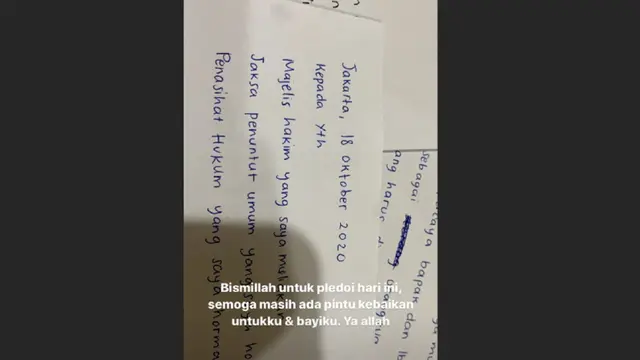 Jakarta, 18 oktober 2020
Kepada Yth
Majelis hakim yang saya
Jaksa penuntut umum yang
Penasihat Hukum yang saya horma
bapak dan
sebagai
ang harus
Bismillah untuk pledoi hari ini,
semoga masih ada pintu kebaikan
untukku & bayiku. Ya allah